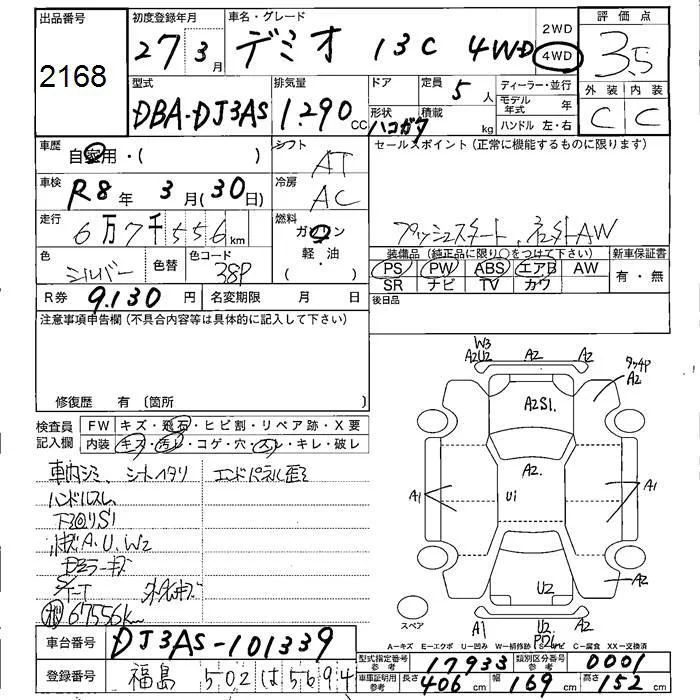 出品番号
2168
初度登録年月
27 3月
車名・グレード
デミオ 13C 4WD
2WD
4WD
評価点
3.5
外装 内装
C C
型式
DBA-DJ3AS
排気量
1.290cc
ドア
定員 5人
形状 ハコガタ
積載 kg
ディーラー・並行
モデル年式 年
ハンドル 左・右
車歴
自家用・( )
シフト
AT
車検
R8年 3月(30日)
冷房
AC
走行
6万7千556km
燃料
ガソリン
軽・油
( )
色
シルバー
色替
色コード
38P
R券 9.130円
名変期限 月 日
セールスポイント(正常に機能するものに限ります)
プッシュスタート、社外AW
装備品(純正品に限り○をつけて下さい)
PS PW ABS エアB AW
SR ナビ TV カワ
新車保証書
有・無
後日品
注意事項申告欄(不具合内容等は具体的に記入して下さい)
修復歴 有(箇所 )
検査員記入欄
FW キズ・飛石・ヒビ割・リペア跡・X要
内装 キズ・汚レ・コゲ・穴・スレ・キレ・破レ
車内シミ、シートヘタリ
エンドパネル歪ミ
ハンドルスレ
下回りS1
ホキズA.U.W2
ドアミラーキズ
67556km
W3
A2U2
A2
A2
タッチP
A2
A2S1.
A2.
U1
A1
A1
U2
A2
スペア
A1
U2
A2
A-キズ E-エクボ U-凹み W-補修跡 S-サビ C-腐食 XX-交換済
車台番号
DJ3AS-101339
登録番号
福島 502 は 5694
型式指定番号参考
17933
類別区分番号参考
0001
車庫証明用参考
長さ 406cm
幅 169cm
高さ 152cm